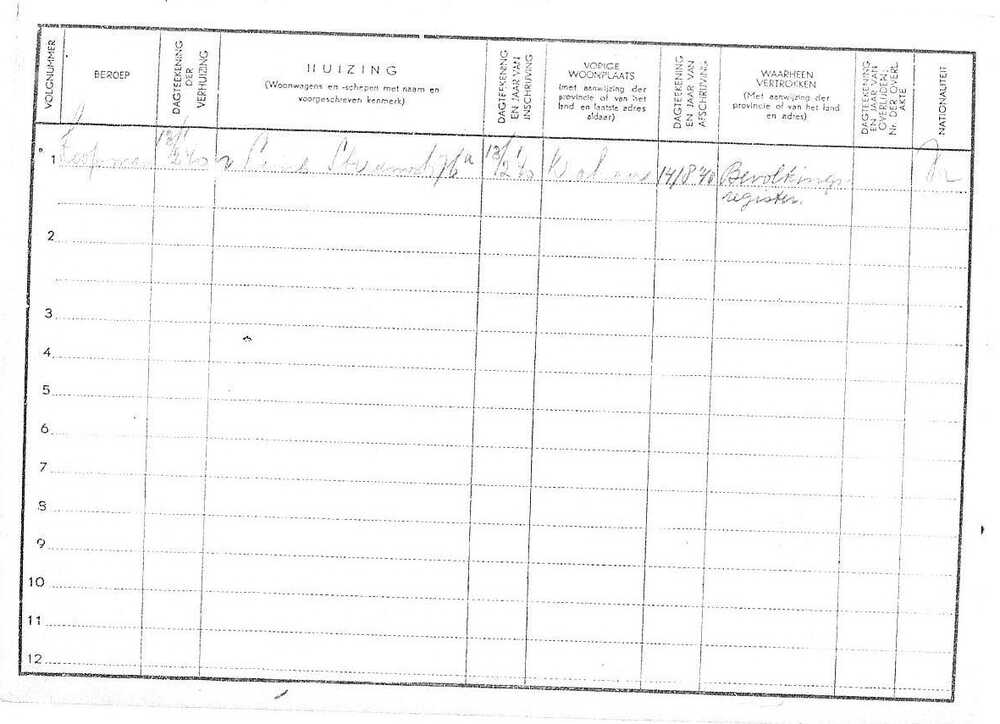 VOLGNUMMER
BEROEP
DAGTEEKENING
DER
VERHUIZING
HUIZING
(Woonwagens en -schepen met naam en
voorgeschreven kenmerk)
DAGTEEKENING
EN JAAR VAN
INSCHRIJVING
VORIGE
WOONPLAATS
(met aanwijzing der
provincie of van het
land en laatste adres
aldaar)
DAGTEEKENING
EN JAAR VAN
AFSCHRIJVING
WAARHEEN
VERTROKKEN
(Met aanwijzing der
provincie of van het land
en adres)
DAGTEEKENING
EN JAAR VAN
OVERLIJDEN;
Nr. DER OVERL.
AKTE
NATIONALITEIT
1 Koopman 14/8 '40 Bevolkings
register.
2
3
4
5
6
7
8
9
10
11
12